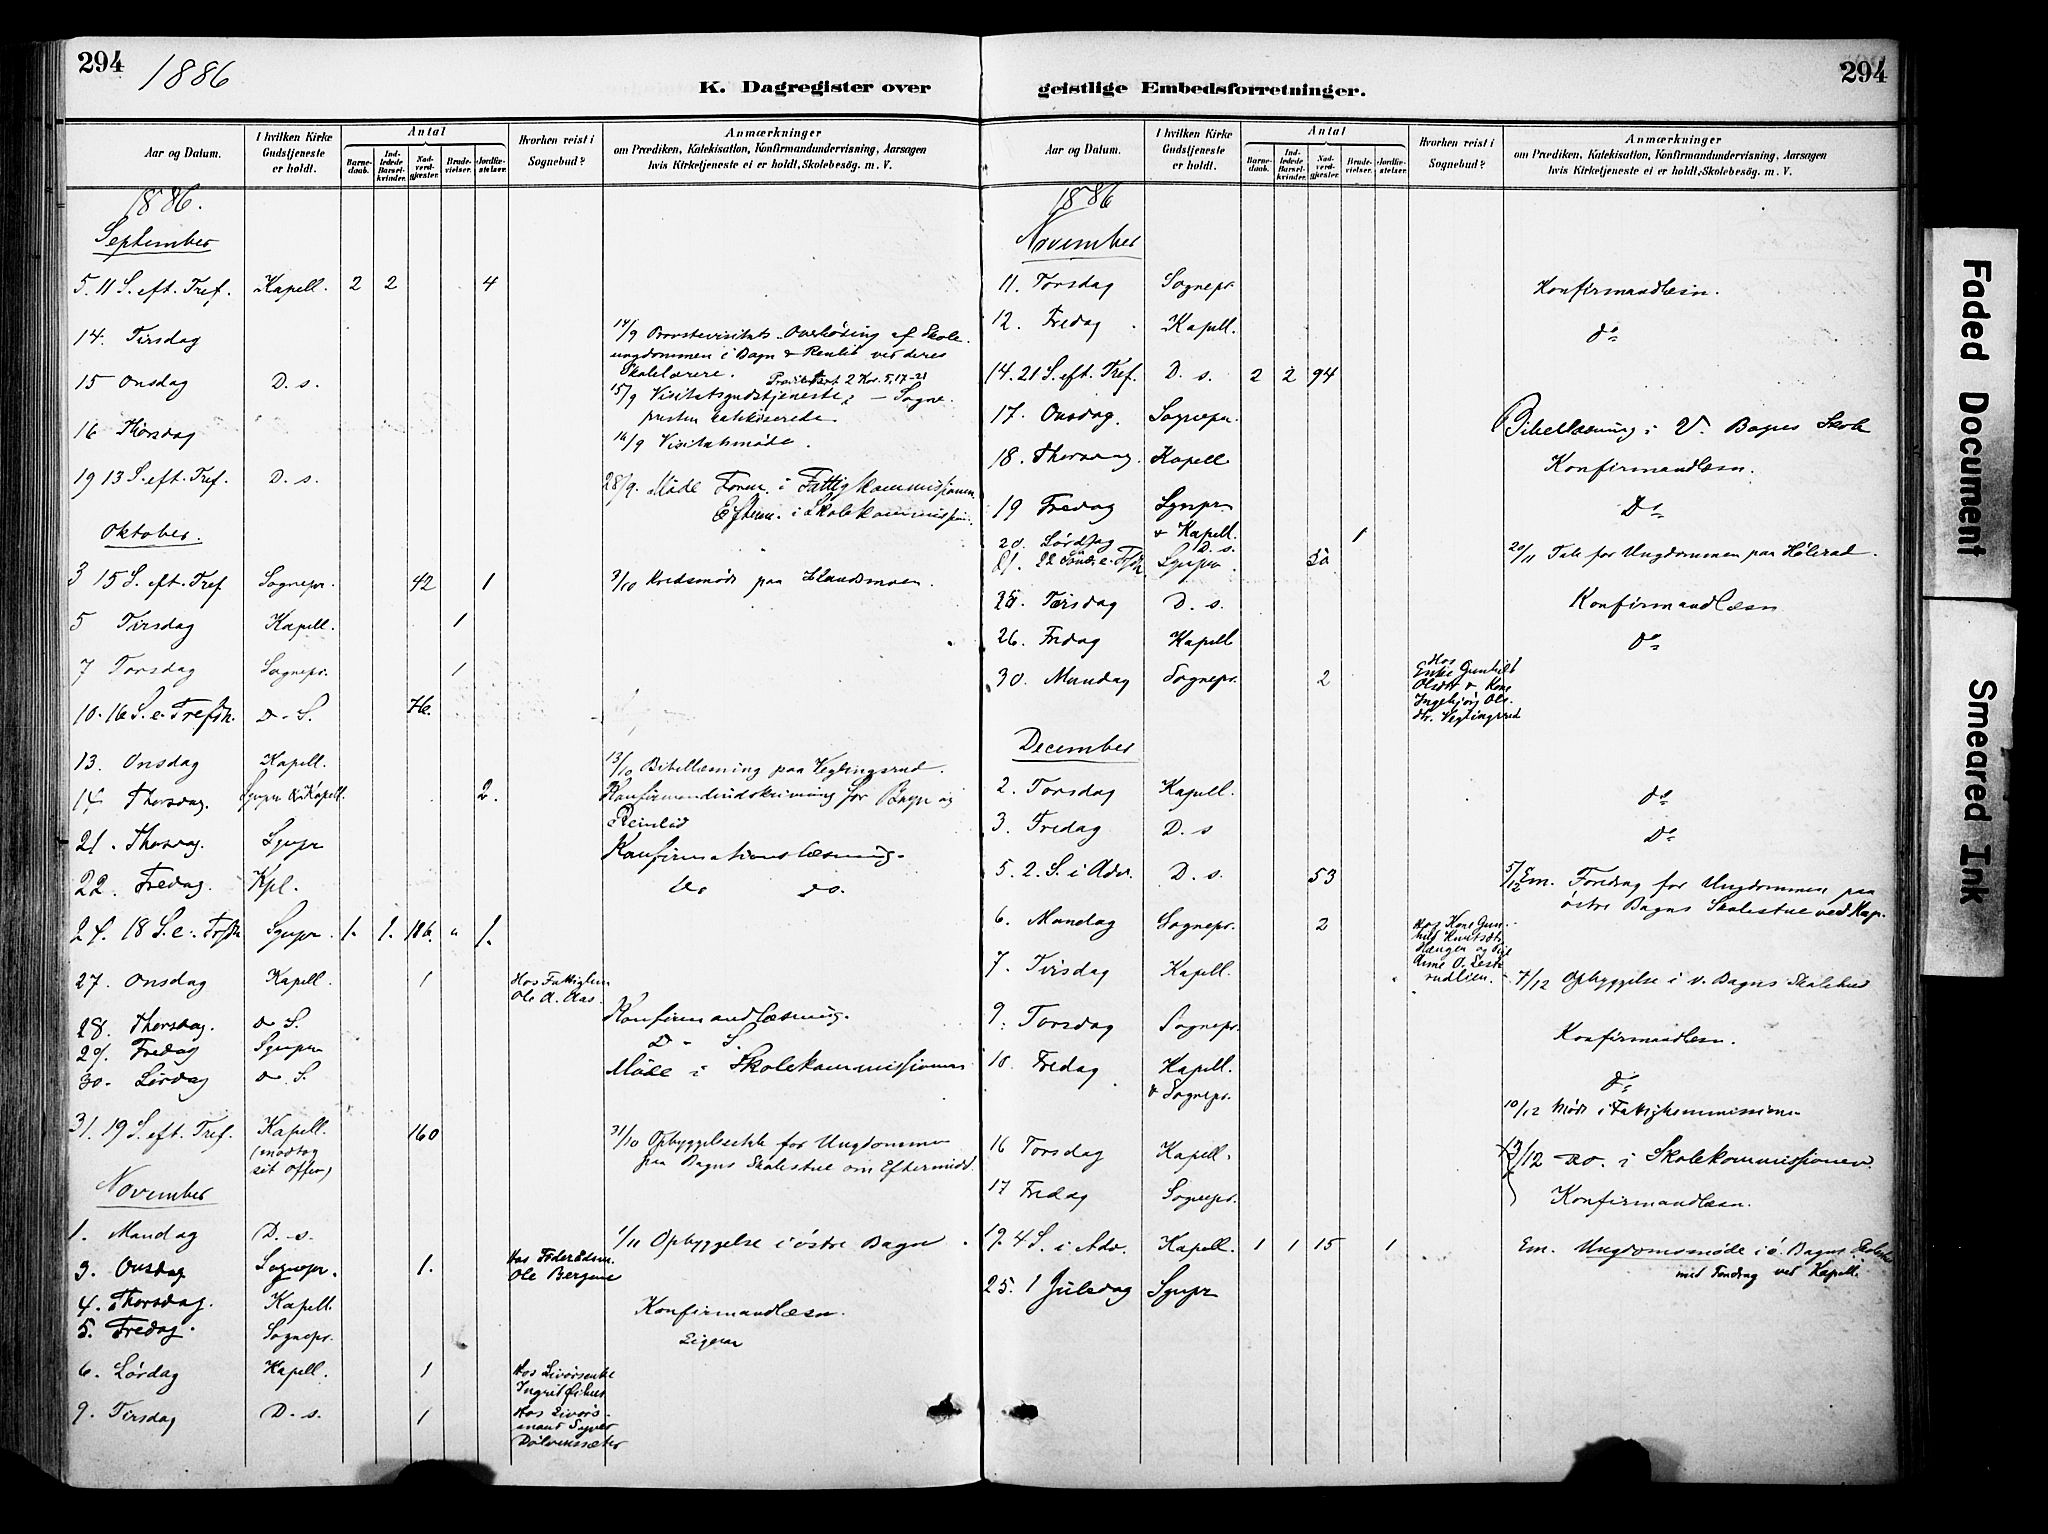 294
1886
K. Dagregister over
Aar og Datum.
I hvilken Kirke Gudstjeneste er holdt.
Antal
Barne-daab.
Ind-ledede Barsel-kvinder.
Nad-verd-gjæster.
Brude-vielser.
Jordfæ-stelser.
Hvorhen reist i Sognebud?
Anmærkninger
om Prædiken, Katekisation, Konfirmandundervisning, Aarsagen
hvis Kirketjeneste ei er holdt, Skolebesög. m. V.
1886.
September
5. 11 S. eft. Tref. Kapell. 2 2 4
14. Tirsdag 14/9 Provstevisitats. Overhöring af Skole-
ungdommen i Bagn & Reinlid ved deres
Skolelærere.
15 Onsdag D. s. 15/9 Visitatsgudstjeneste; – Sogne-
presten katekiserede
16 Thorsdag 16/9 Visitatsmöde.
19 13 S. eft. Tref. D. s. 28/9. Möde Form. i Fattigkommissjonen
Efterm. i Skolekommissjon.
Oktober.
3 15 S. eft. Tref Sognepr. 42 1 3/10 Kredsmöde paa Islandsmoen.
5 Tirsdag Kapell. 1
7 Torsdag Sognepr. 1
10. 16 S. e. Trefdh. d. S. 76.
13. Onsdag Kapell. 13/10 Bibellæsning paa Veglingsrud.
14 Thorsdag. Sgnpr & Kapell. 2. Konfirmandindskrivning for Bagn og
Reinlid
21. Thorsdag. Sgnpr Konfirmationslæsning.
22. Fredag. Kpl. do do.
24. 18 S. e. Trfdh. Sgnpr. 1. 1. 186. " 1.
27. Onsdag Kapell. 1 Hos Fattiglem
Ole A. Aas.
28. Thorsdag. d. S. Konfirmandlæsning.
29. Fredag Sgnpr D. S.
30. Lördag d. S. Möde i Skolekommissjonen
31. 19 S. eft. Tref. Kapell. 160 31/10 Opbyggelsestale for Ungdommen
(modtog
sit Offer)
paa Bagns Skolestue om Eftermidd.
November
1. Mandag D. s. 1/11 Opbyggelse i östre Bagn.
3. Onsdag Sognepr. 1. Hos Föderaadsm.
Ole Bergene
4. Thorsdag. Kapell. Konfirmandlæsn.
5. Fredag. Sognepr. Ligesaa
6. Lördag Kapell. 1 Hos Livörsenke
Ingrid
9. Tirsdag D. s. 1 Hos Livörs-
mand Syver
Dölvesæter
294
geistlige Embedsforretninger.
Aar og Datum.
I hvilken Kirke Gudstjeneste er holdt.
Antal
Barne-daab.
Ind-ledede Barsel-kvinder.
Nad-verd-gjæster.
Brude-vielser.
Jordfæ-stelser.
Hvorhen reist i Sognebud?
Anmærkninger
om Prædiken, Katekisation, Konfirmandundervisning, Aarsagen
hvis Kirketjeneste ei er holdt, Skolebesög. m. V.
1886
November
11. Torsdag Sognepr. Konfirmandlæsn.
12. Fredag. Kapell. do
14. 21 S. eft. Tref. D. s. 2 2 94
17. Onsdag. Sognepr. Bibellæsning i V. Bagns Skole
18. Thorsdag. Kapell Konfirmandlæsn.
19 Fredag Sgnpr. Do
& Kapell.
20. Lördag D. s. 1 20/11 Tale for Ungdommen paa Hölerud.
21. 22 Sönd. e. Trfdh. Sgnpr.
25. Torsdag D. s. Konfirmandlæsn
26. Fredag Kapell do
30. Mandag Sognepr. 2 Hos
Enke Gunhild
Olsdtr & Kone
Ingebjörg Ols-
dtr. Veglingsrud
December
2. Torsdag Kapell. do
3. Fredag D. s Do
5. 2. S. i Adv. D. s. 53 5/12 Em. Foredrag for Ungdommen paa
östre Bagns Skolestue ved Kap.
6. Mandag Sognepr. 2 Hos Kone Gun-
hild Knutsdtr
Haugen og Pige
Anne O.
rudlien.
7. Tirsdag Kapell. 7/12 Opbyggelse i v. Bagns Skolehus
9. Torsdag Sognepr. Konfirmandlæsn.
10. Fredag Kapell. do
& Sognepr.
10/12 Möde i Fattigkommissionen
16 Torsdag Kapell. 13/12 Do. i Skolekommissjonen.
17 Fredag Sognepr. Konfirmandlæsn.
19. 4 S. i Adv. Kapell. 1 1 15 1 Em. Ungdomsmöde i ö. Bagns Skolestue
med Foredrag ved Kapell.
25. 1 Juledag Sgnpr
Faded Document
Smeared Ink